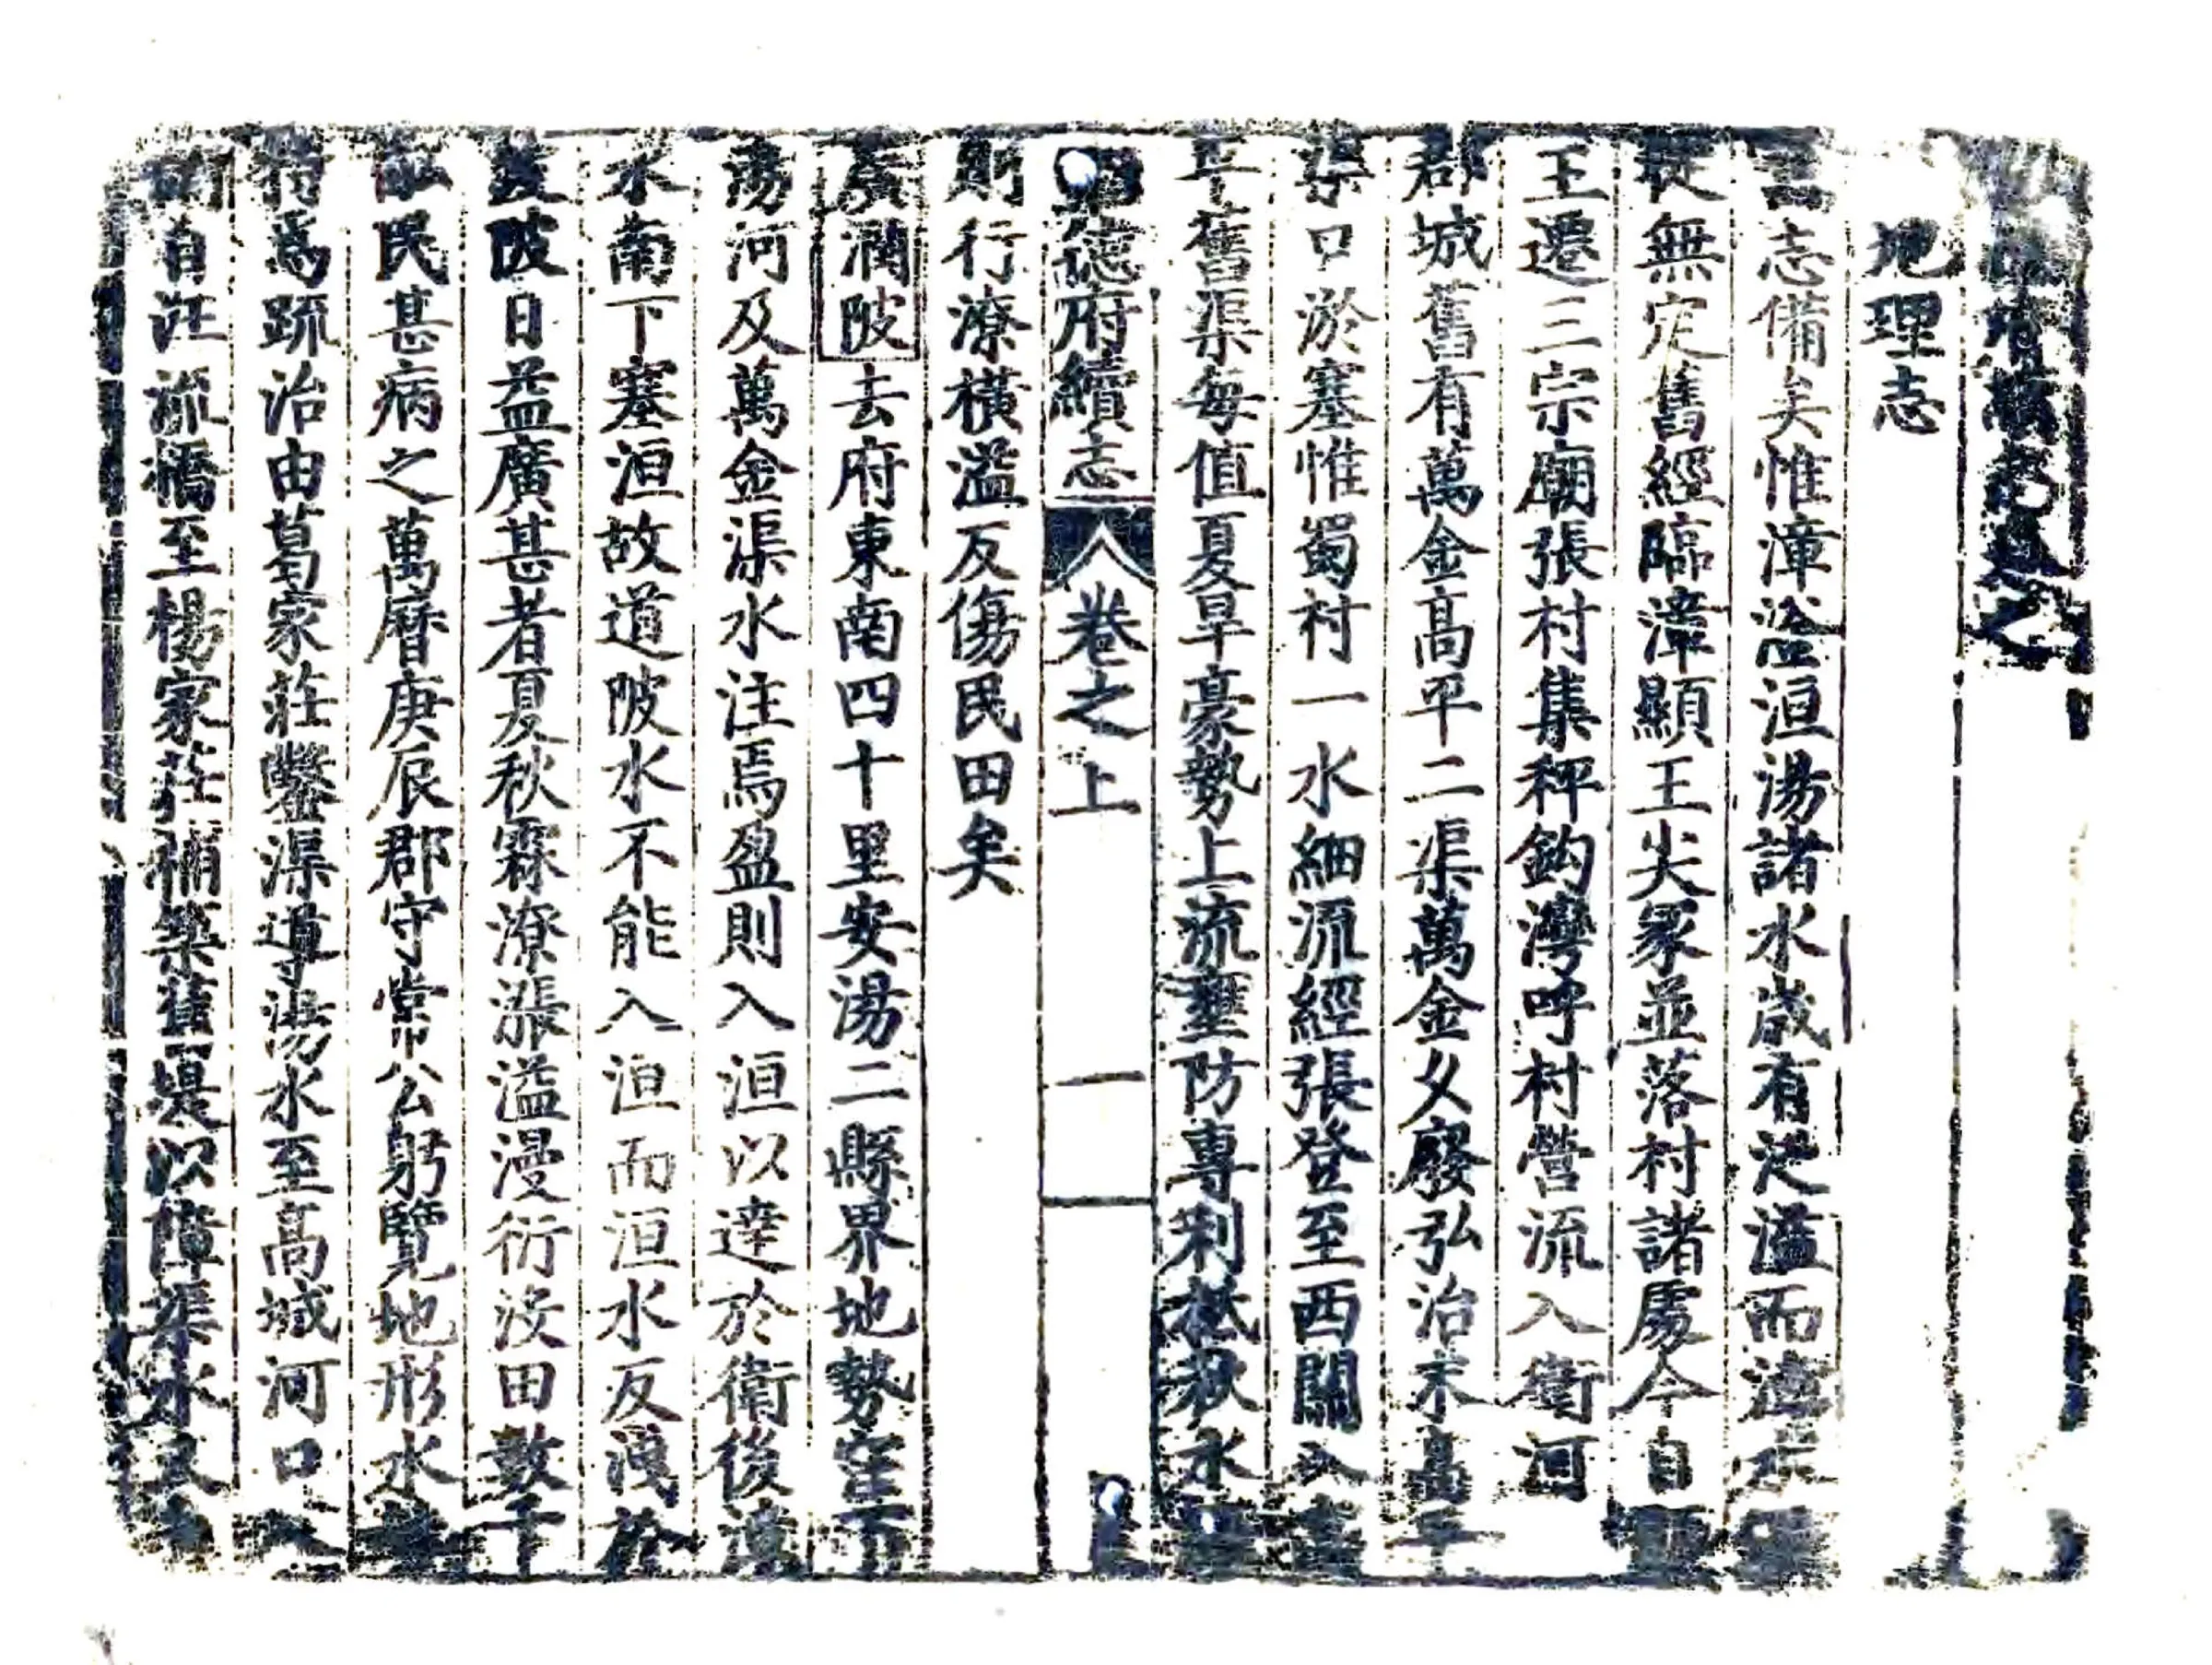 府續志卷之
地理志
舊志備矣惟漳滏洹湯諸水歲有泛溢而漳水
徙無定舊經臨漳顯王尖冢並落村諸處今自
王遷三宗廟張村集秤鈎灣呼村營流入衛河
郡城舊有萬金高平二渠萬金久廢弘治末高平
渠口淤塞惟蜀村一水細流經張登至西關入
平舊渠每值夏旱豪勢上流壅防專利秋水
彰德府續志 卷之上 一
則行潦橫溢反傷民田矣
廣潤陂去府東南四十里安湯二縣界地勢窪下
湯河及萬金渠水注焉盈則入洹以達於衛後
水南下塞洹故道陂水不能入洹而洹水反淺於
陂日益廣甚者夏秋霖潦漲溢漫衍沒田數千
畝民甚病之萬曆庚辰郡守常公躬覽地形水
焉疏治由葛家莊鑿渠導湯水至高城河口入
自汪流橋至楊家莊補築舊堤以障渠水又